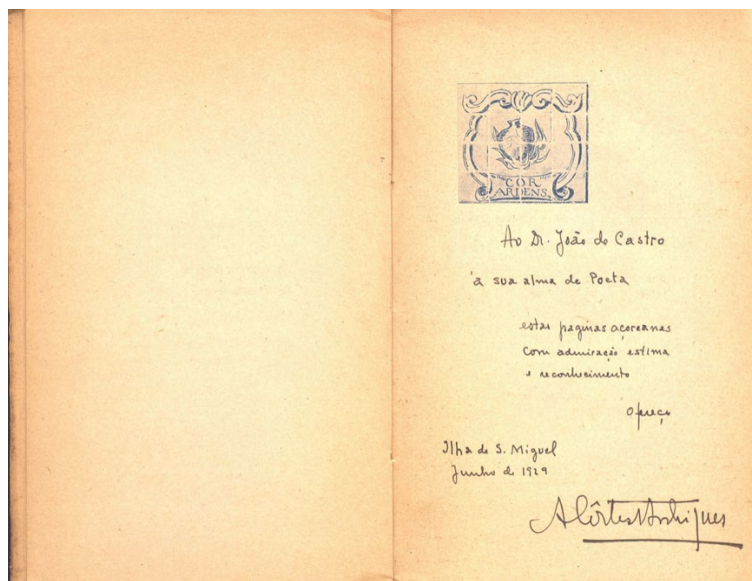 COR
ARDENS
Ao Dr. João de Castro
à sua alma de Poeta
estas paginas açoreanas
com admiração estima
e reconhecimento
ofereço
Ilha de S. Miguel
Junho de 1929
A Côrtes-Rodrigues